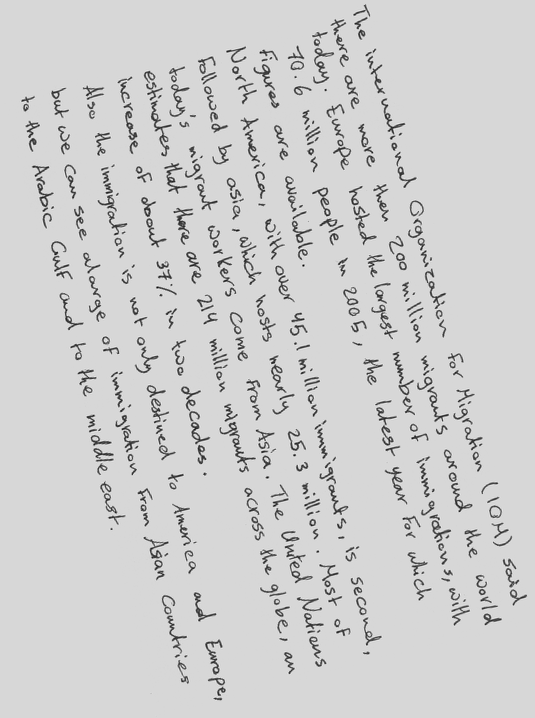 The international Organization for Migration (IOM) said
there are more then 200 million migrants around the world
today. Europe hosted the largest number of immigrations, with
70.6 million people in 2005, the latest year for which
figures are available.
North America, with over 45.1 million immigrants, is second,
followed by asia, which hosts nearly 25.3 million. Most of
today's migrant workers come from Asia. The United Nations
estimates that there are 214 million migrants across the globe, an
increase of about 37% in two decades.
Also the immigration is not only destined to America and Europe,
but we can see alarge of immigration from Asian Countries
to the Arabic Gulf and to the middle east.